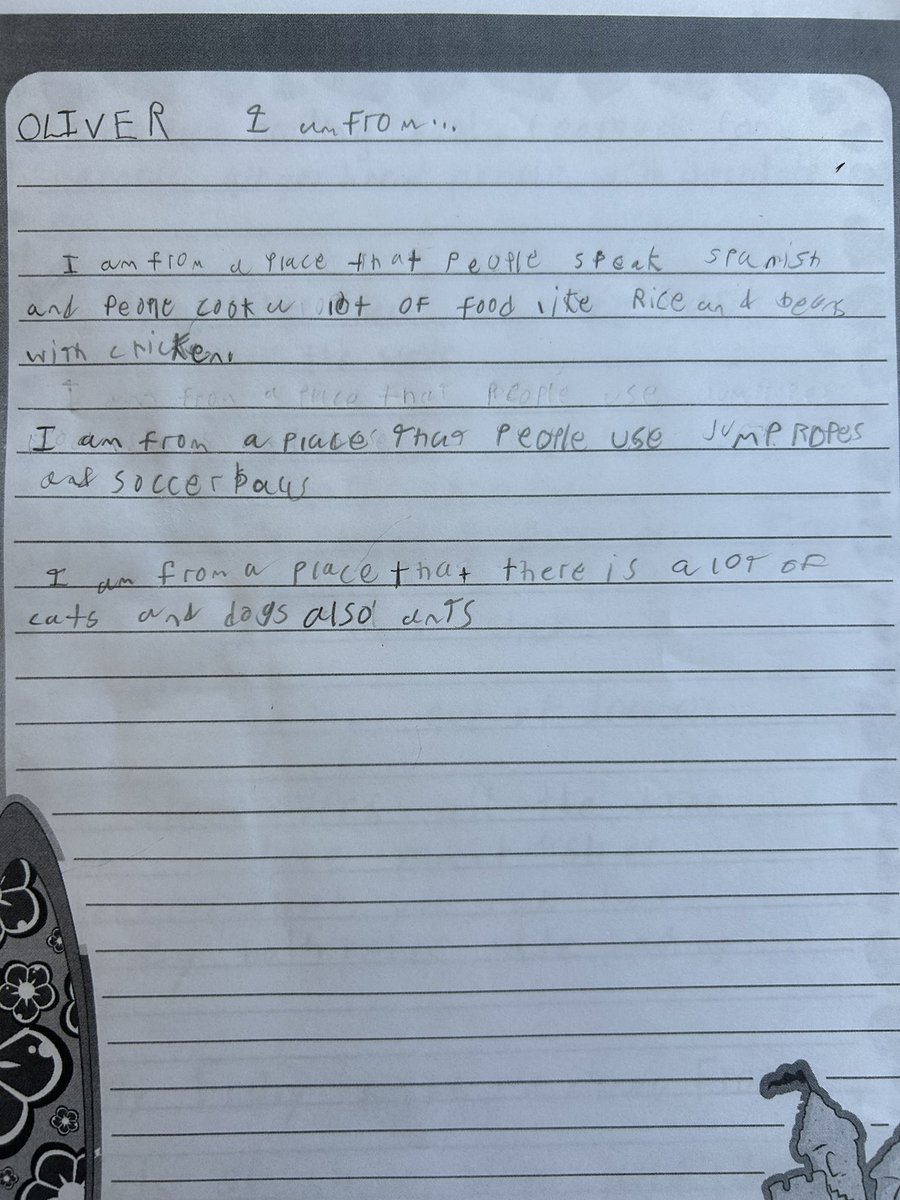 OLIVER I am FROM...
I am from a place that people speak spanish
and people cook a lot OF food like Rice and beans
with chicken.
I am from a place that people use
I am from a place That PEOPLE USE JUMP ROPES
and SOCCER balls
I am from a place that there is a LOT OF
cats and dogs also anTS